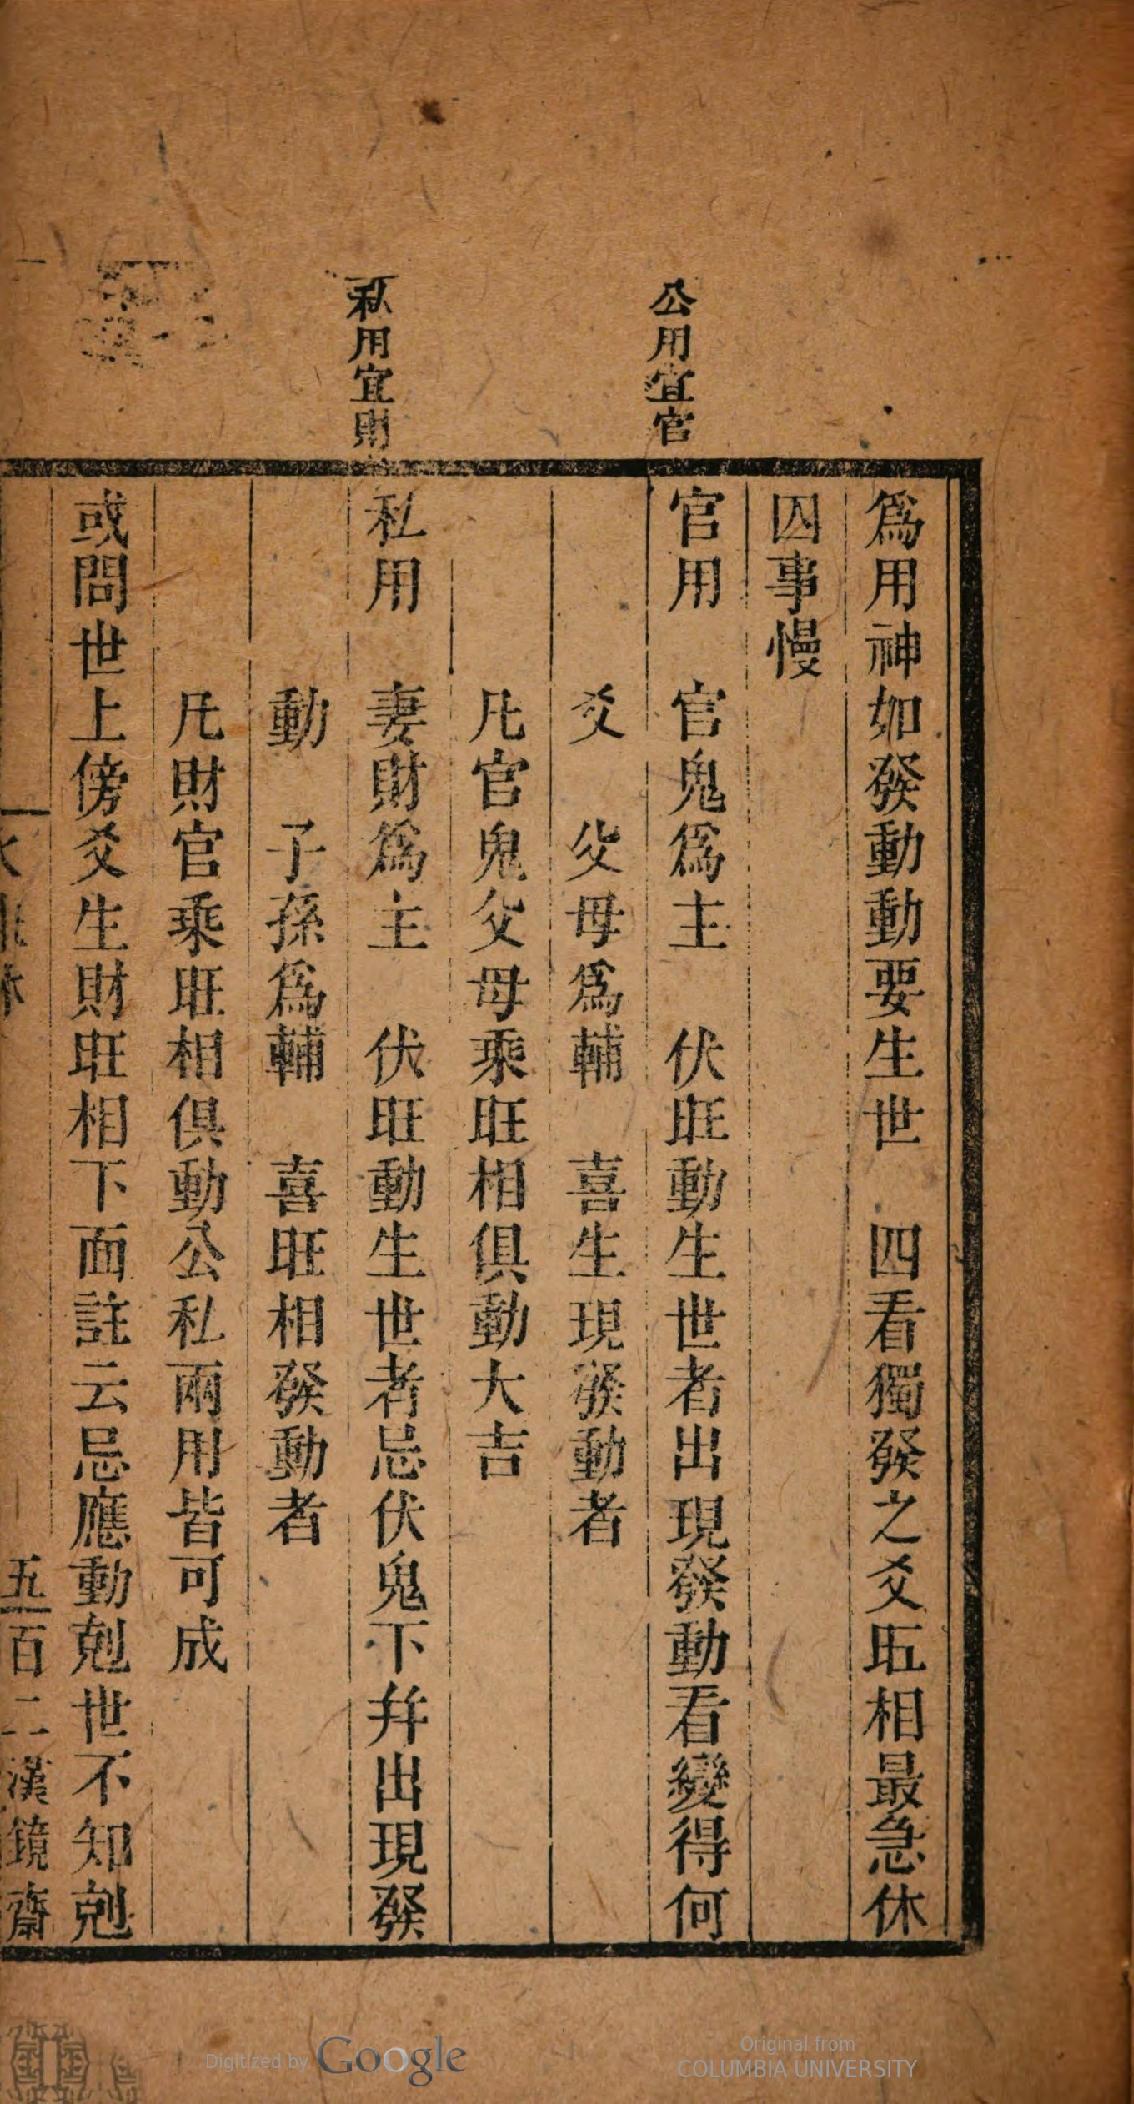 公用宜官
私用宜財
為用神如發動動要生世　四看獨發之爻旺相最急休
囚事慢
官用　官鬼為主　伏旺動生世者出現發動看變得何
爻　父母為輔　喜生現發動者
凡官鬼父母乘旺相俱動大吉
私用　妻財為主　伏旺動生世者忌伏鬼下并出現發
動　子孫為輔　喜旺相發動者
凡財官乘旺相俱動公私兩用皆可成
或問世上傍爻生財旺相下面註云忌應動剋世不知剋
五
百二漢鏡齋
Digitized by Google
Original from
COLUMBIA UNIVERSITY